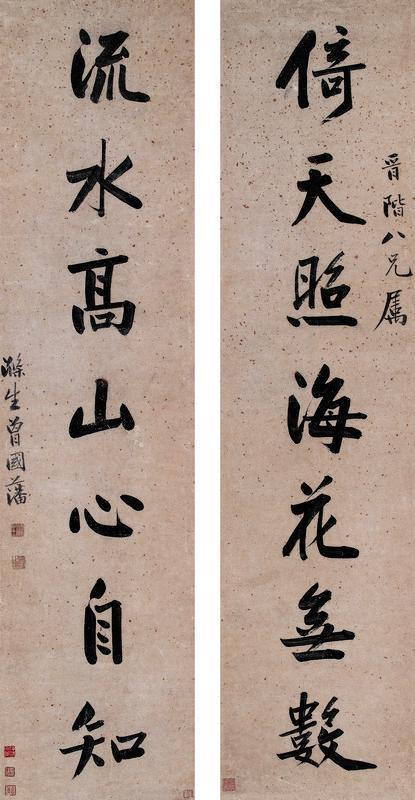 晋階八兄屬
倚天照海花無數
流水高山心自知
滌生曾國藩